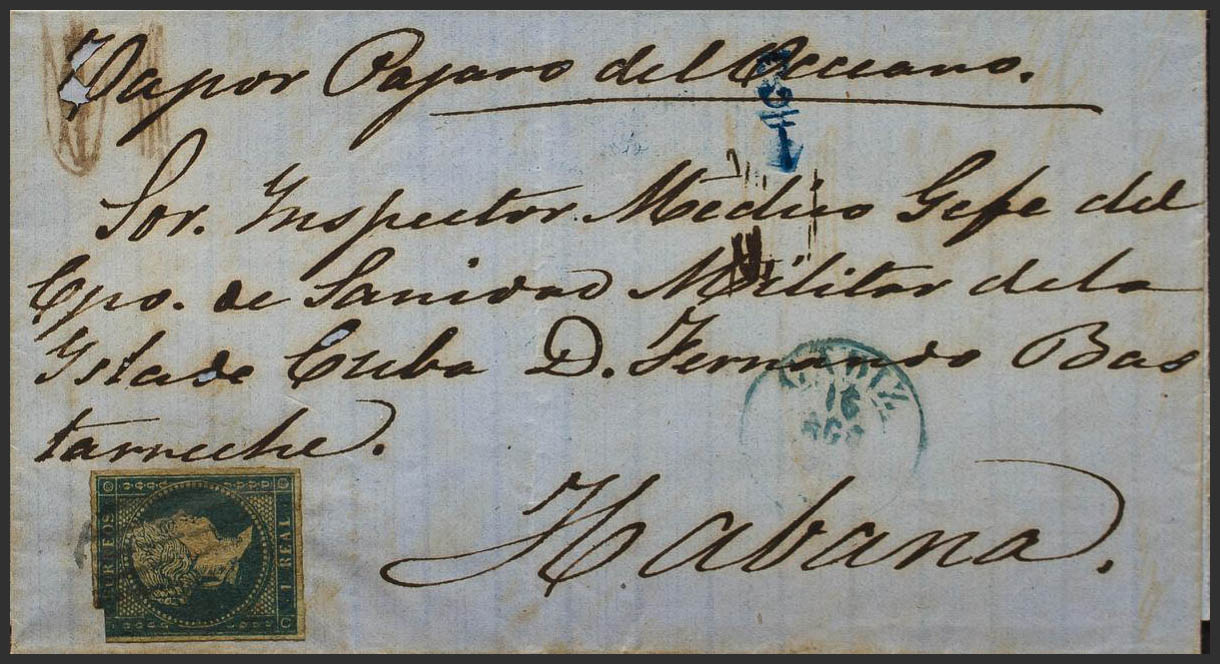 Vapor Pajaro del Occeano.
Sor. Inspector Medico Gefe del
Cpo. de Sanidad Militar de la
Ysla de Cuba D. Fernando Bas
tarreche.
Habana.
CADIZ
16
AGO
CORREOS
1 REAL